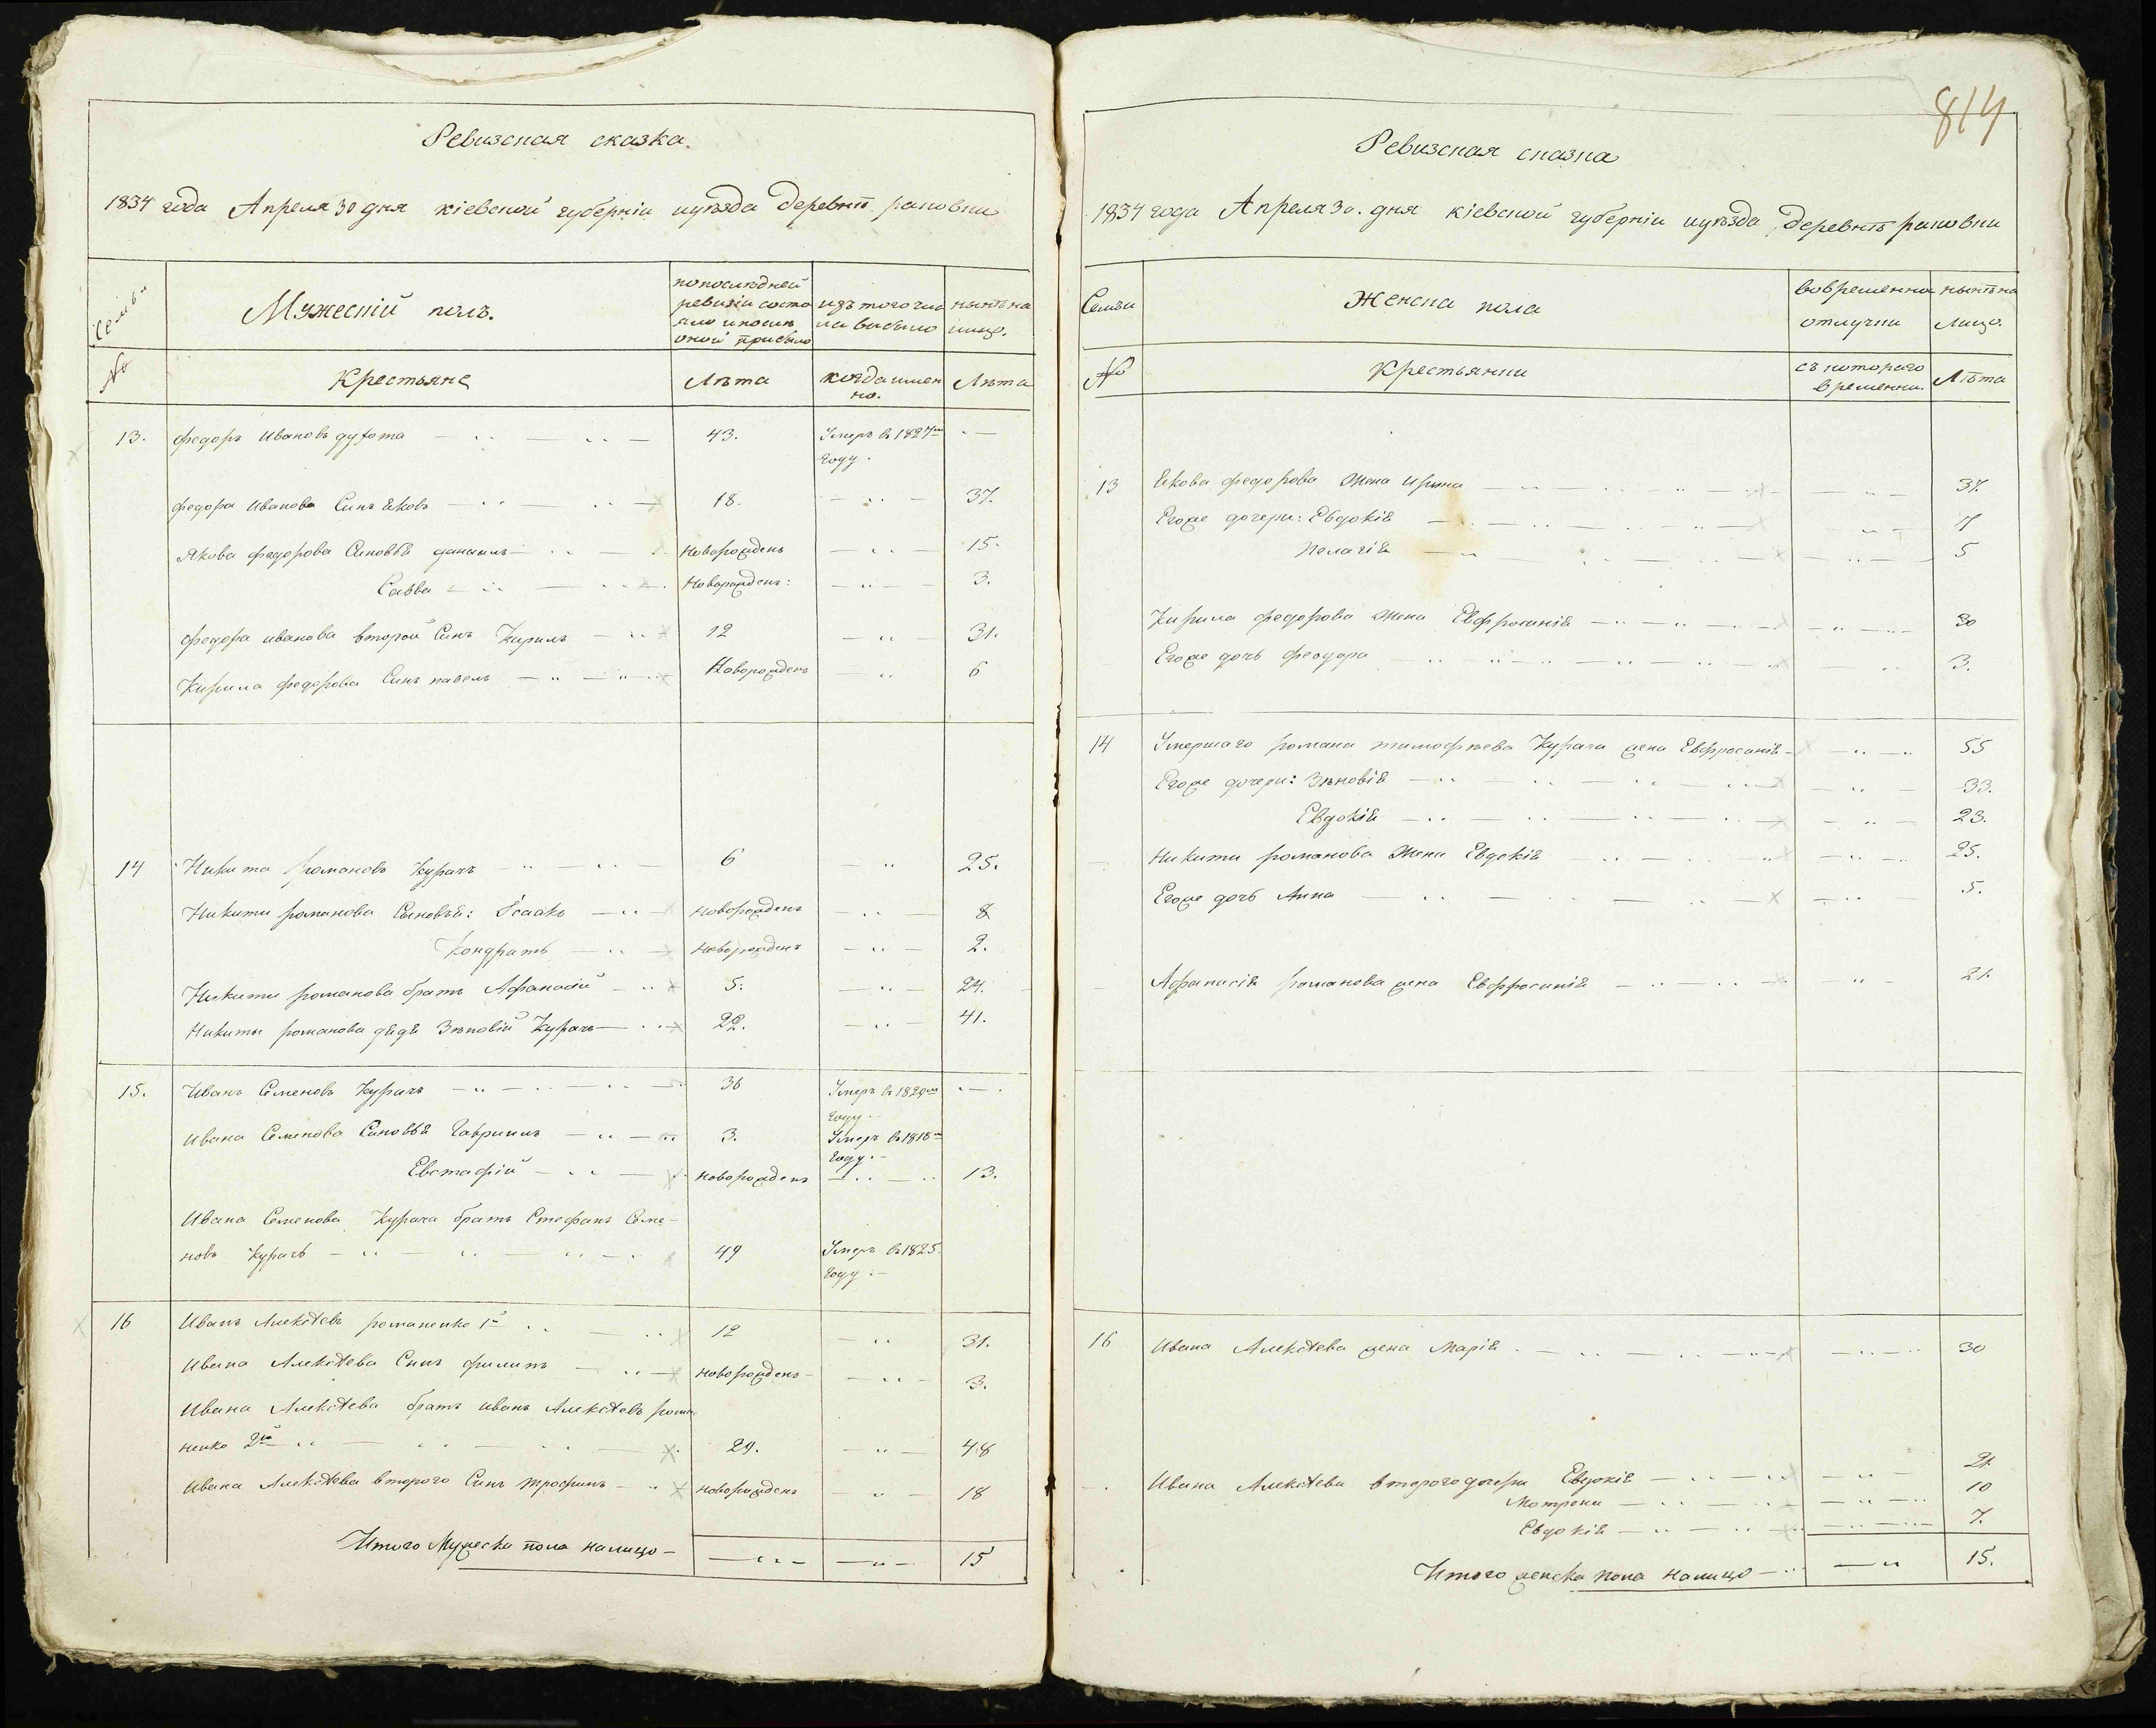 814
Ревизская сказка.
1834 года Апреля 30 дня кіевской губерніи иуѣзда деревнѣ раковки
Семьи
Мужескій полъ.
попослѣдней ревизіи состояло ипослѣ оной прибыло
изъ того числа выбыло
нынѣ на лицо.
№
Крестьяне
Лѣта
когда имен но.
Лѣта
13. федоръ Ивановъ 43. Умеръ в 1827м
году.
федора Иванова Синъ Яковъ 18. 37.
Якова федорова Сыновья данаилъ Новорожденъ 15.
Савва Новорожденъ: 3.
федора иванова второй Синъ Кирилъ 12 31.
Кирила федорова Синъ павелъ Новорожденъ 6
14 Никита романовъ Курачъ 6 25.
Никити романова Сыновья: Ісаакъ Новорожденъ 8
Кондратъ Новорожденъ 2.
Никити романова братъ Афанасій 5. 24.
Никиты романова дядя Зѣновій Курачъ 22. 41.
15. Иванъ Семеновъ Курачъ 36 Умеръ в 1829м
году.
Ивана Семенова Синовья Гавриилъ 3. Умеръ в 1818м
году.
Евстафій новорожденъ 13.
Ивана Семенова Курача братъ Стефанъ Семе-
новъ Курачъ 49 Умеръ в 1825.
году.
16 Иванъ Алексѣевъ романенко 1й 12 31.
Ивана Алексѣева Синъ филипъ новорожденъ 3.
Ивана Алексѣева братъ иванъ Алексѣевъ рома
ненко 2й 29. 48
Ивана Алексѣева второго Синъ трофимъ новорожденъ 18
Итого Мужеска пола налицо 15
Ревизская сказка
1834 года Апреля 30. дня кіевской губерніи иуѣзда деревнѣ раковки
Семьи
Женска пола
вовременной отлучки
нынѣ на Лицо.
№
Крестьянки
съ котораго времени.
Лѣта
13 Якова федорова Жена Ирина 37.
Егоже дочери: Евдокія 7
Пелагія 5
Кирила федорова Жена Евфросинія 30
Егоже дочь феодора 3.
14 Умершаго романа тимофѣева Курача жена Евфросинія 55
Егоже дочери: Зѣновія 33.
Евдокія 23.
Никити романова Жена Евдокія 25.
Егоже дочь Анна 5.
Афанасія романова жена Евфросинія 21.
16 Ивана Алексѣева жена Марія 30
Ивана Алексѣева второго дочери Евдокія 21.
Мотрона 10
Евдокія 7.
Итого женска пола налицо 15.